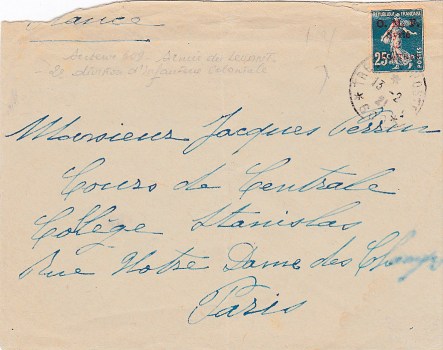 France
Secteur 509 Armée du LEVANT.
2e division d'Infanterie Coloniale
REPUBLIQUE FRANÇAISE
25
POSTES
13 - 2
Monsieur Jacques Perrin
Cours de Centrale
Collège Stanislas
Rue Notre Dame des Champs
Paris